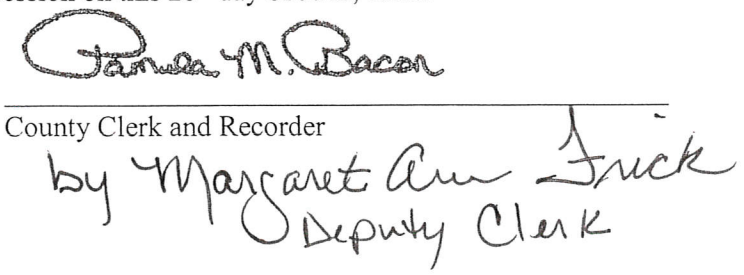 Pamela M. Bacon
County Clerk and Recorder
by Margaret Ann Frick
Deputy Clerk